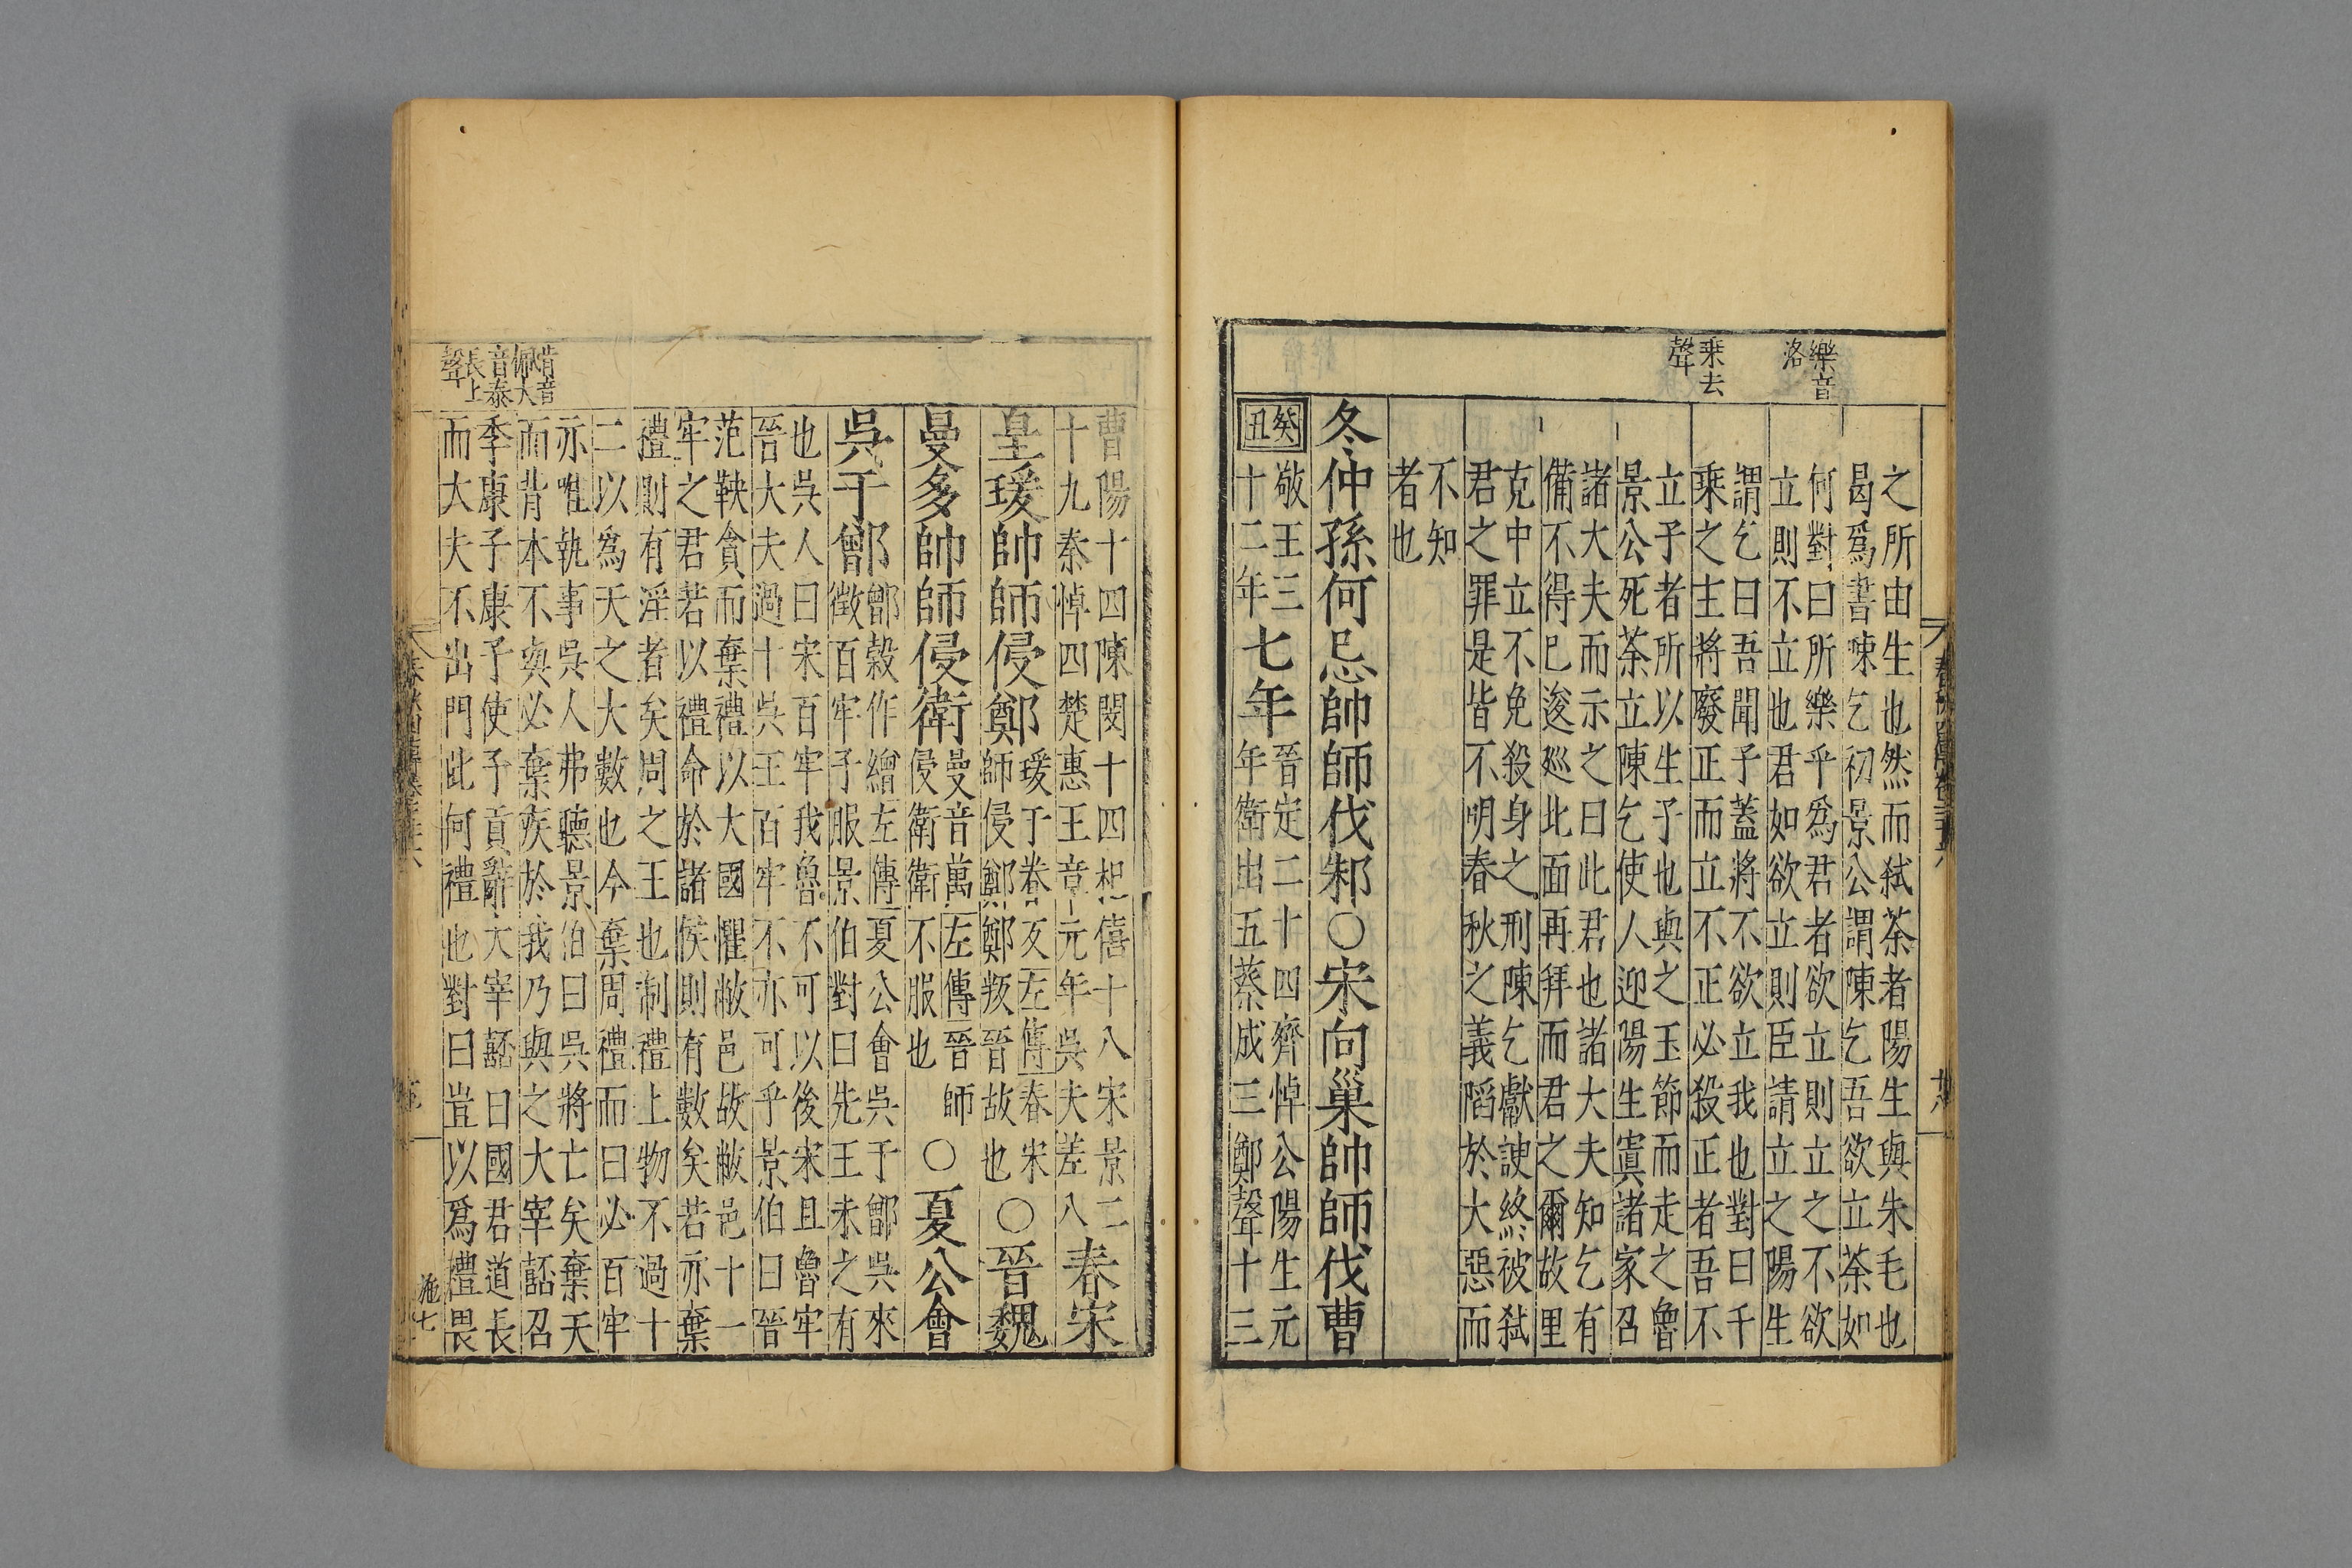 樂音
洛
乗去
聲
之所由生也然而弑荼者陽生與朱毛也
曷爲書陳乞初景公謂陳乞吾欲立荼如
何對曰所樂乎爲君者欲立則立之不欲
立則不立也君如欲立則臣請立之陽生
謂乞曰吾聞子蓋將不欲立我也對曰千
乘之主將廢正而立不正必殺正者吾不
立子者所以生子也與之玉節而走之魯
景公死荼立陳乞使人迎陽生寘諸家召
諸大夫而示之曰此君也諸大夫知乞有
備不得已逡廵此面再拜而君之爾故里
克中立不免殺身之刑陳乞獻諛終被弑
君之罪是皆不明春秋之義䧟於大惡而
不知
者也
冬仲孫何忌帥師伐邾○宋向巢帥師伐曹
癸丑
敬王三
十二年
七年
晉定二十四齊悼公陽生元
年衛出五蔡成三鄭聲十三
曹陽十四陳閔十四杞僖十八宋景二
十九秦悼四楚惠王章元年吳夫差八
春宋
皇瑗帥師侵鄭
瑗于眷反左傳春宋
師侵鄭鄭叛晉故也
○晉魏
曼多帥師侵衛
曼音萬左傳晉師
侵衛衛不服也
○夏公會
吳于鄫
鄫穀作繒左傳夏公會吳于鄫吳來
徵百牢子服景伯對曰先王未之有
也吳人曰宋百牢我魯不可以後宋且魯牢
晉大夫過十吳王百牢不亦可乎景伯曰晉
范鞅貪而棄禮以大國懼敝邑故敝邑十一
牢之君若以禮命於諸侯則有數矣若亦棄
禮則有淫者矣周之王也制禮上物不過十
二以爲天之大數也今棄周禮而曰必百牢
亦唯執事吳人弗聽景伯曰吳將亡矣棄天
而背本不與必棄疾於我乃與之大宰嚭召
季康子康子使子貢辭大宰嚭曰國君道長
而大夫不出門此何禮也對曰豈以爲禮畏
背音
佩大
音泰
長上
聲